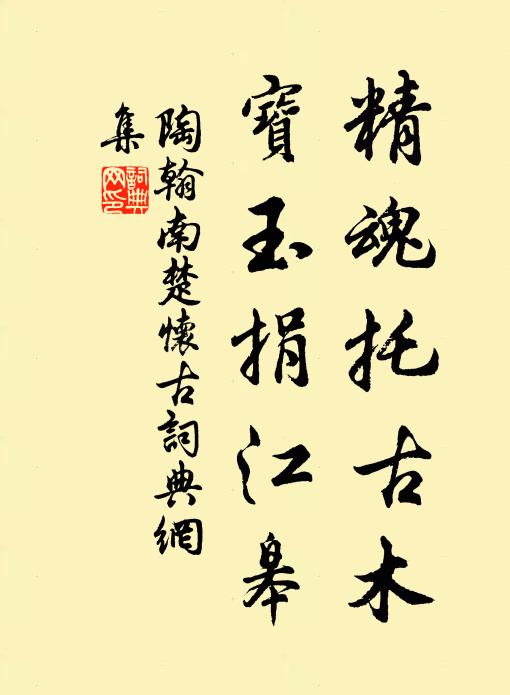 精魂托古木
寶玉捐江皋
陶翰南楚懷古詞典網
集
詞典
网印